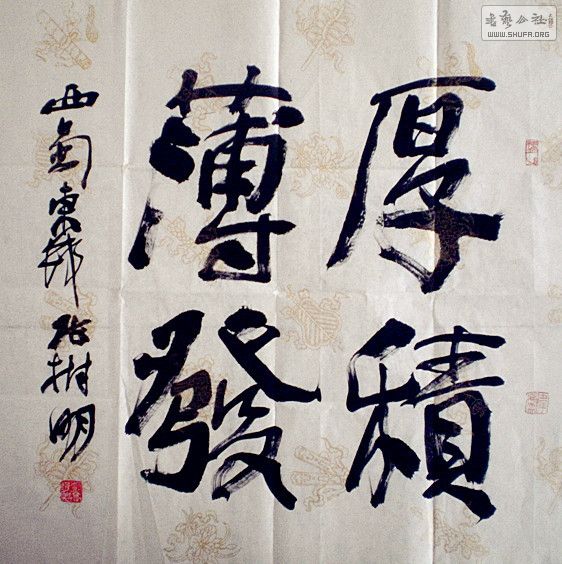 厚積
薄發
西
东
张树明
書藝公社
WWW.SHUFA.ORG